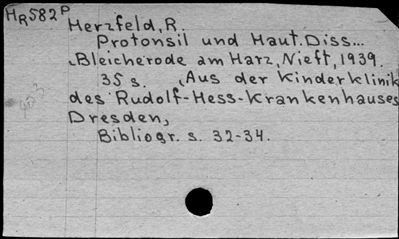 HR582P
Herzfeld, R.
Protonsil und Haut. Diss...
Bleicherode am Harz, Nieft, 1939.
35 s. (Aus der Kinderklinik
des Rudolf-Hess-Krankenhauses
Dresden)
Bibliogr. s. 32-34.